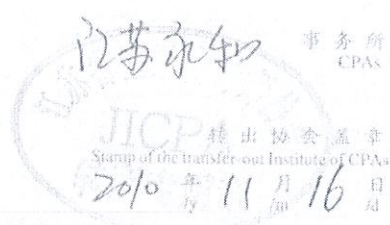 江苏永和 事务所
CPAs
JICPA
转出协会盖章
Stamp of the transfer-out Institute of CPAs
2010 年 11 月 16 日
/y /m /d